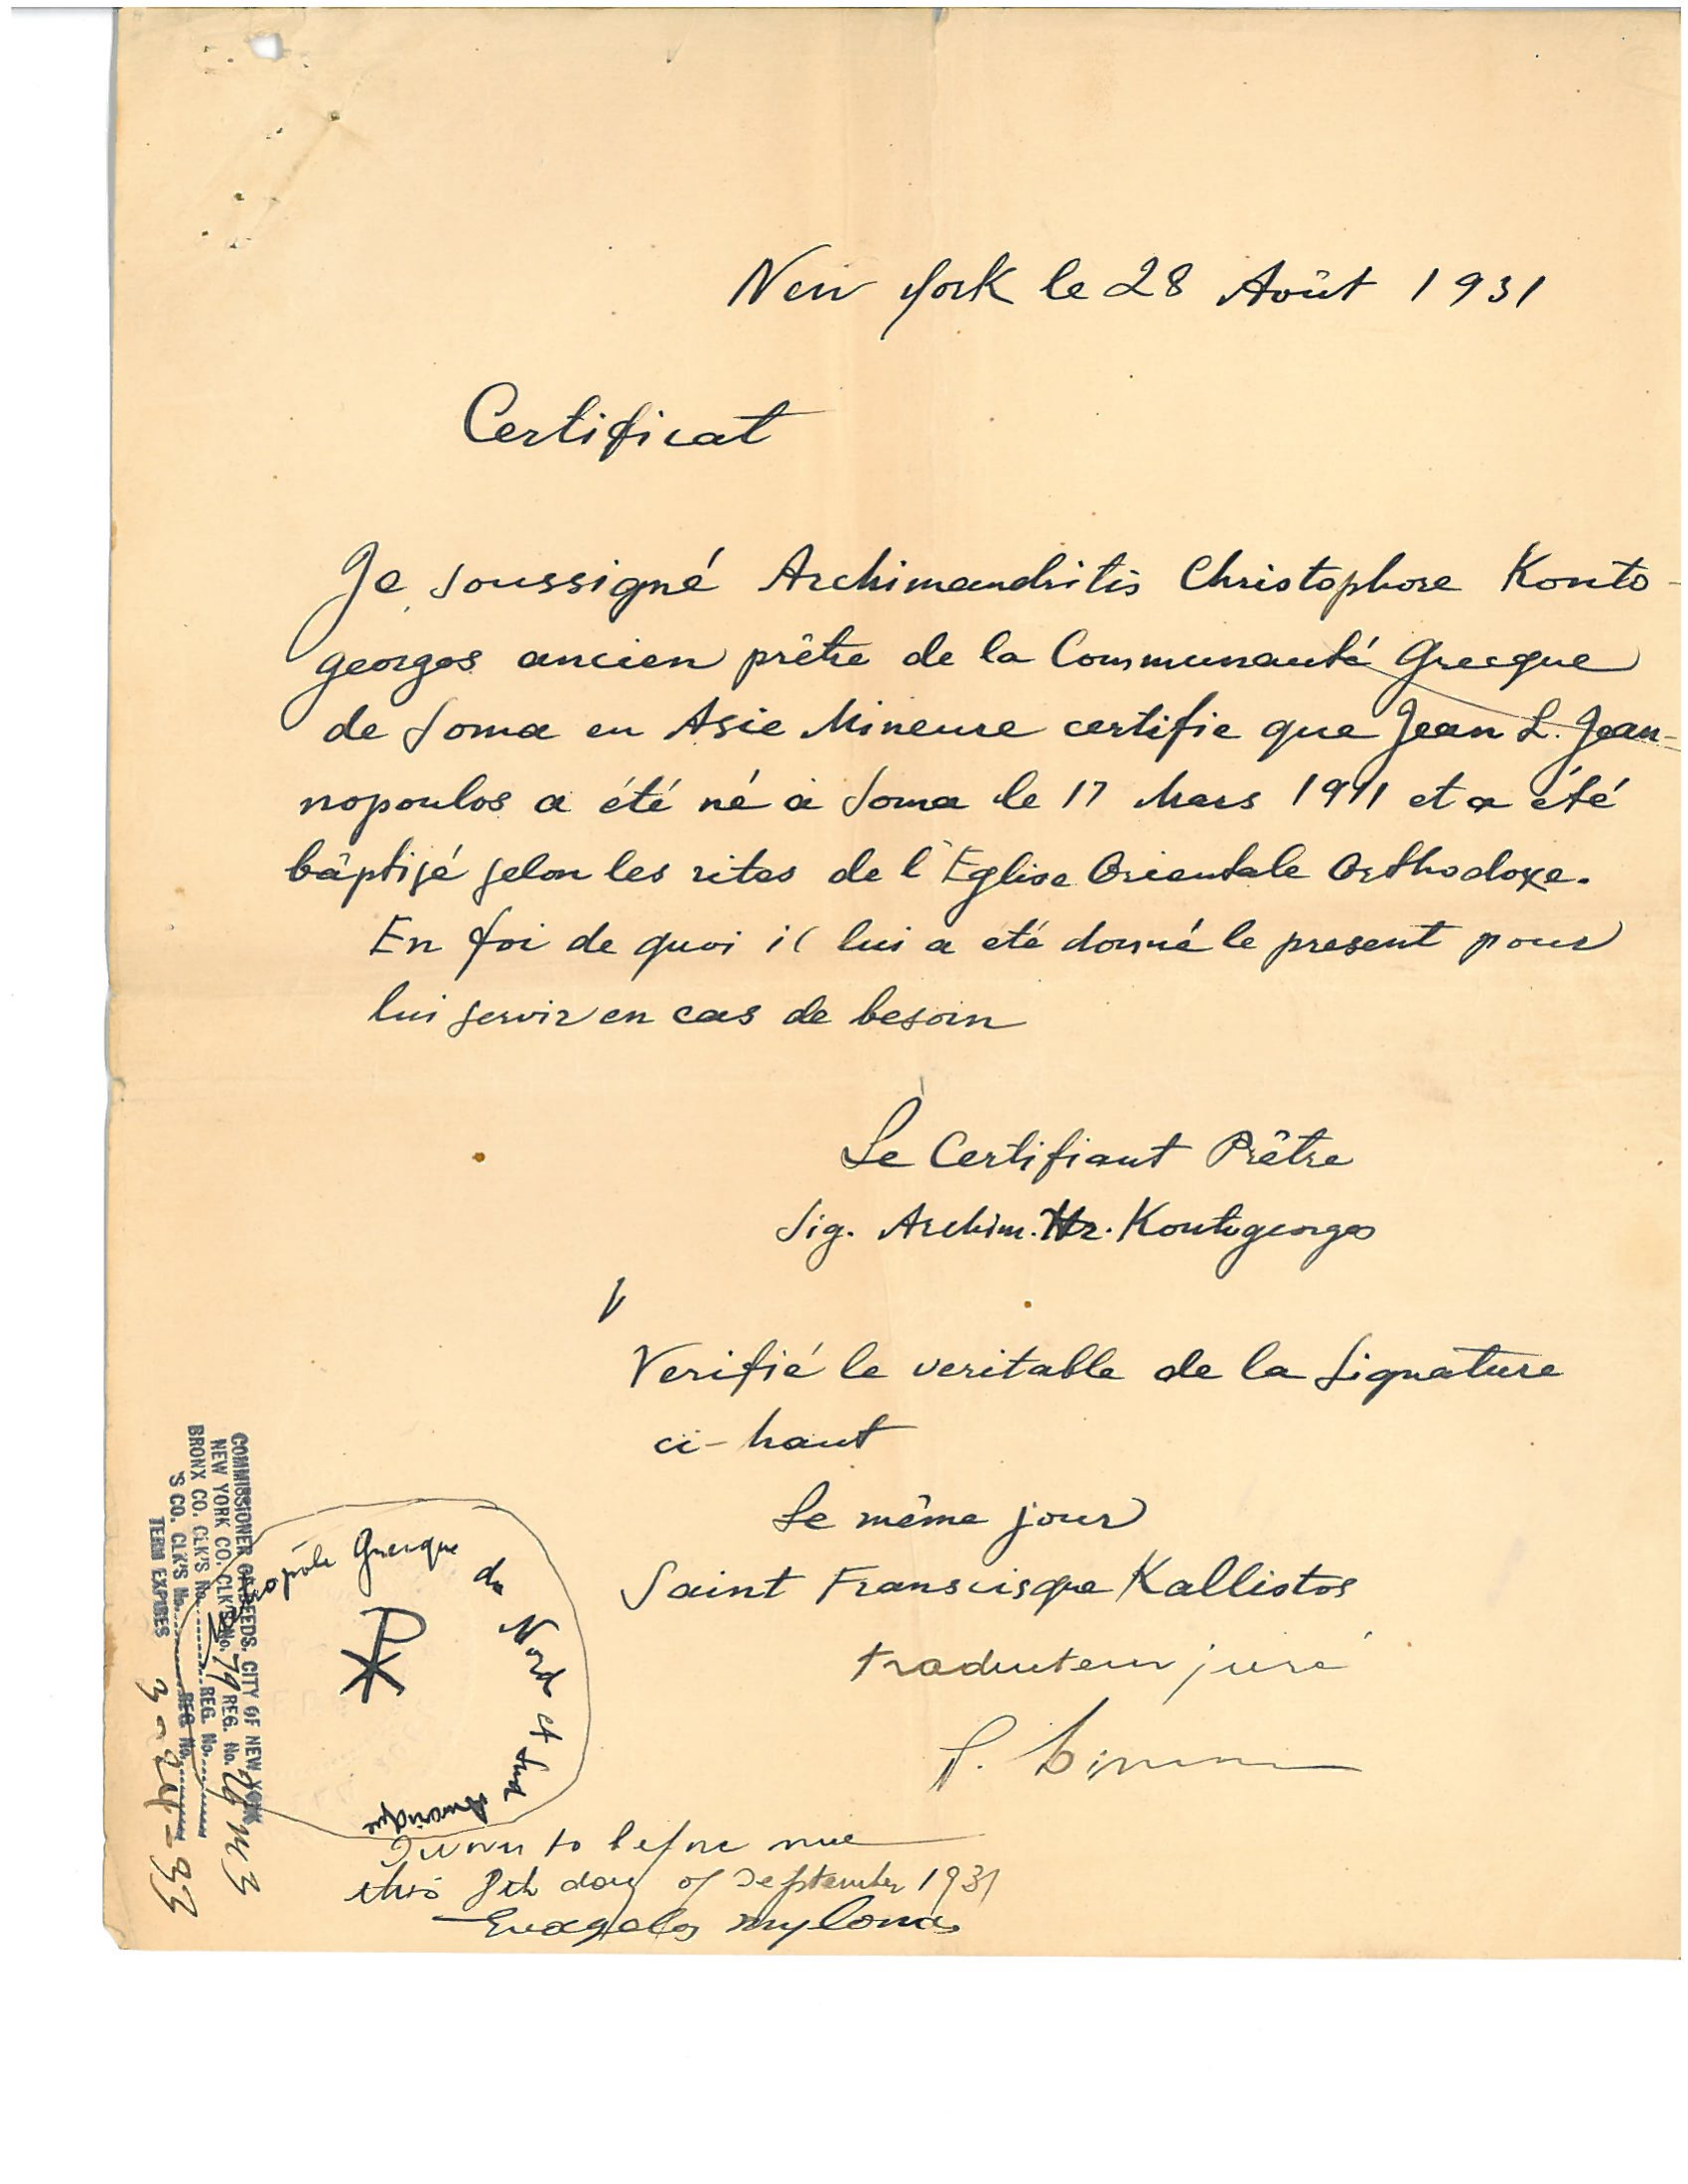 New York le 28 Août 1931
Certificat
Je soussigné Archimandritis Christophore Konto-
georgos ancien prêtre de la Communauté Grecque
de Soma en Asie Mineure certifie que Jean L. Jean-
nopoulos a été né à Soma le 17 Mars 1911 et a été
bâptisé selon les rites de l'Eglise Orientale Orthodoxe.
En foi de quoi il lui a eté donné le present pour
lui servir en cas de besoin
Le Certifiant Prêtre
Sig. Archim. Hr. Kontogeorgos
Verifié le veritable de la Signature
ci-haut
Le même jour
Saint Franscisque Kallistos
traducteur juré
Grecque du Nord et Sud Amerique
Sworn to before me
this 8th day of September 1931
Evagelos Mylonas
COMMISSIONER OF DEEDS, CITY OF NEW YORK
NEW YORK CO. CLK'S No. 79 REG. No.
BRONX CO. CLK'S No. REG. No.
'S CO. CLK'S No. REG. No.
TERM EXPIRES